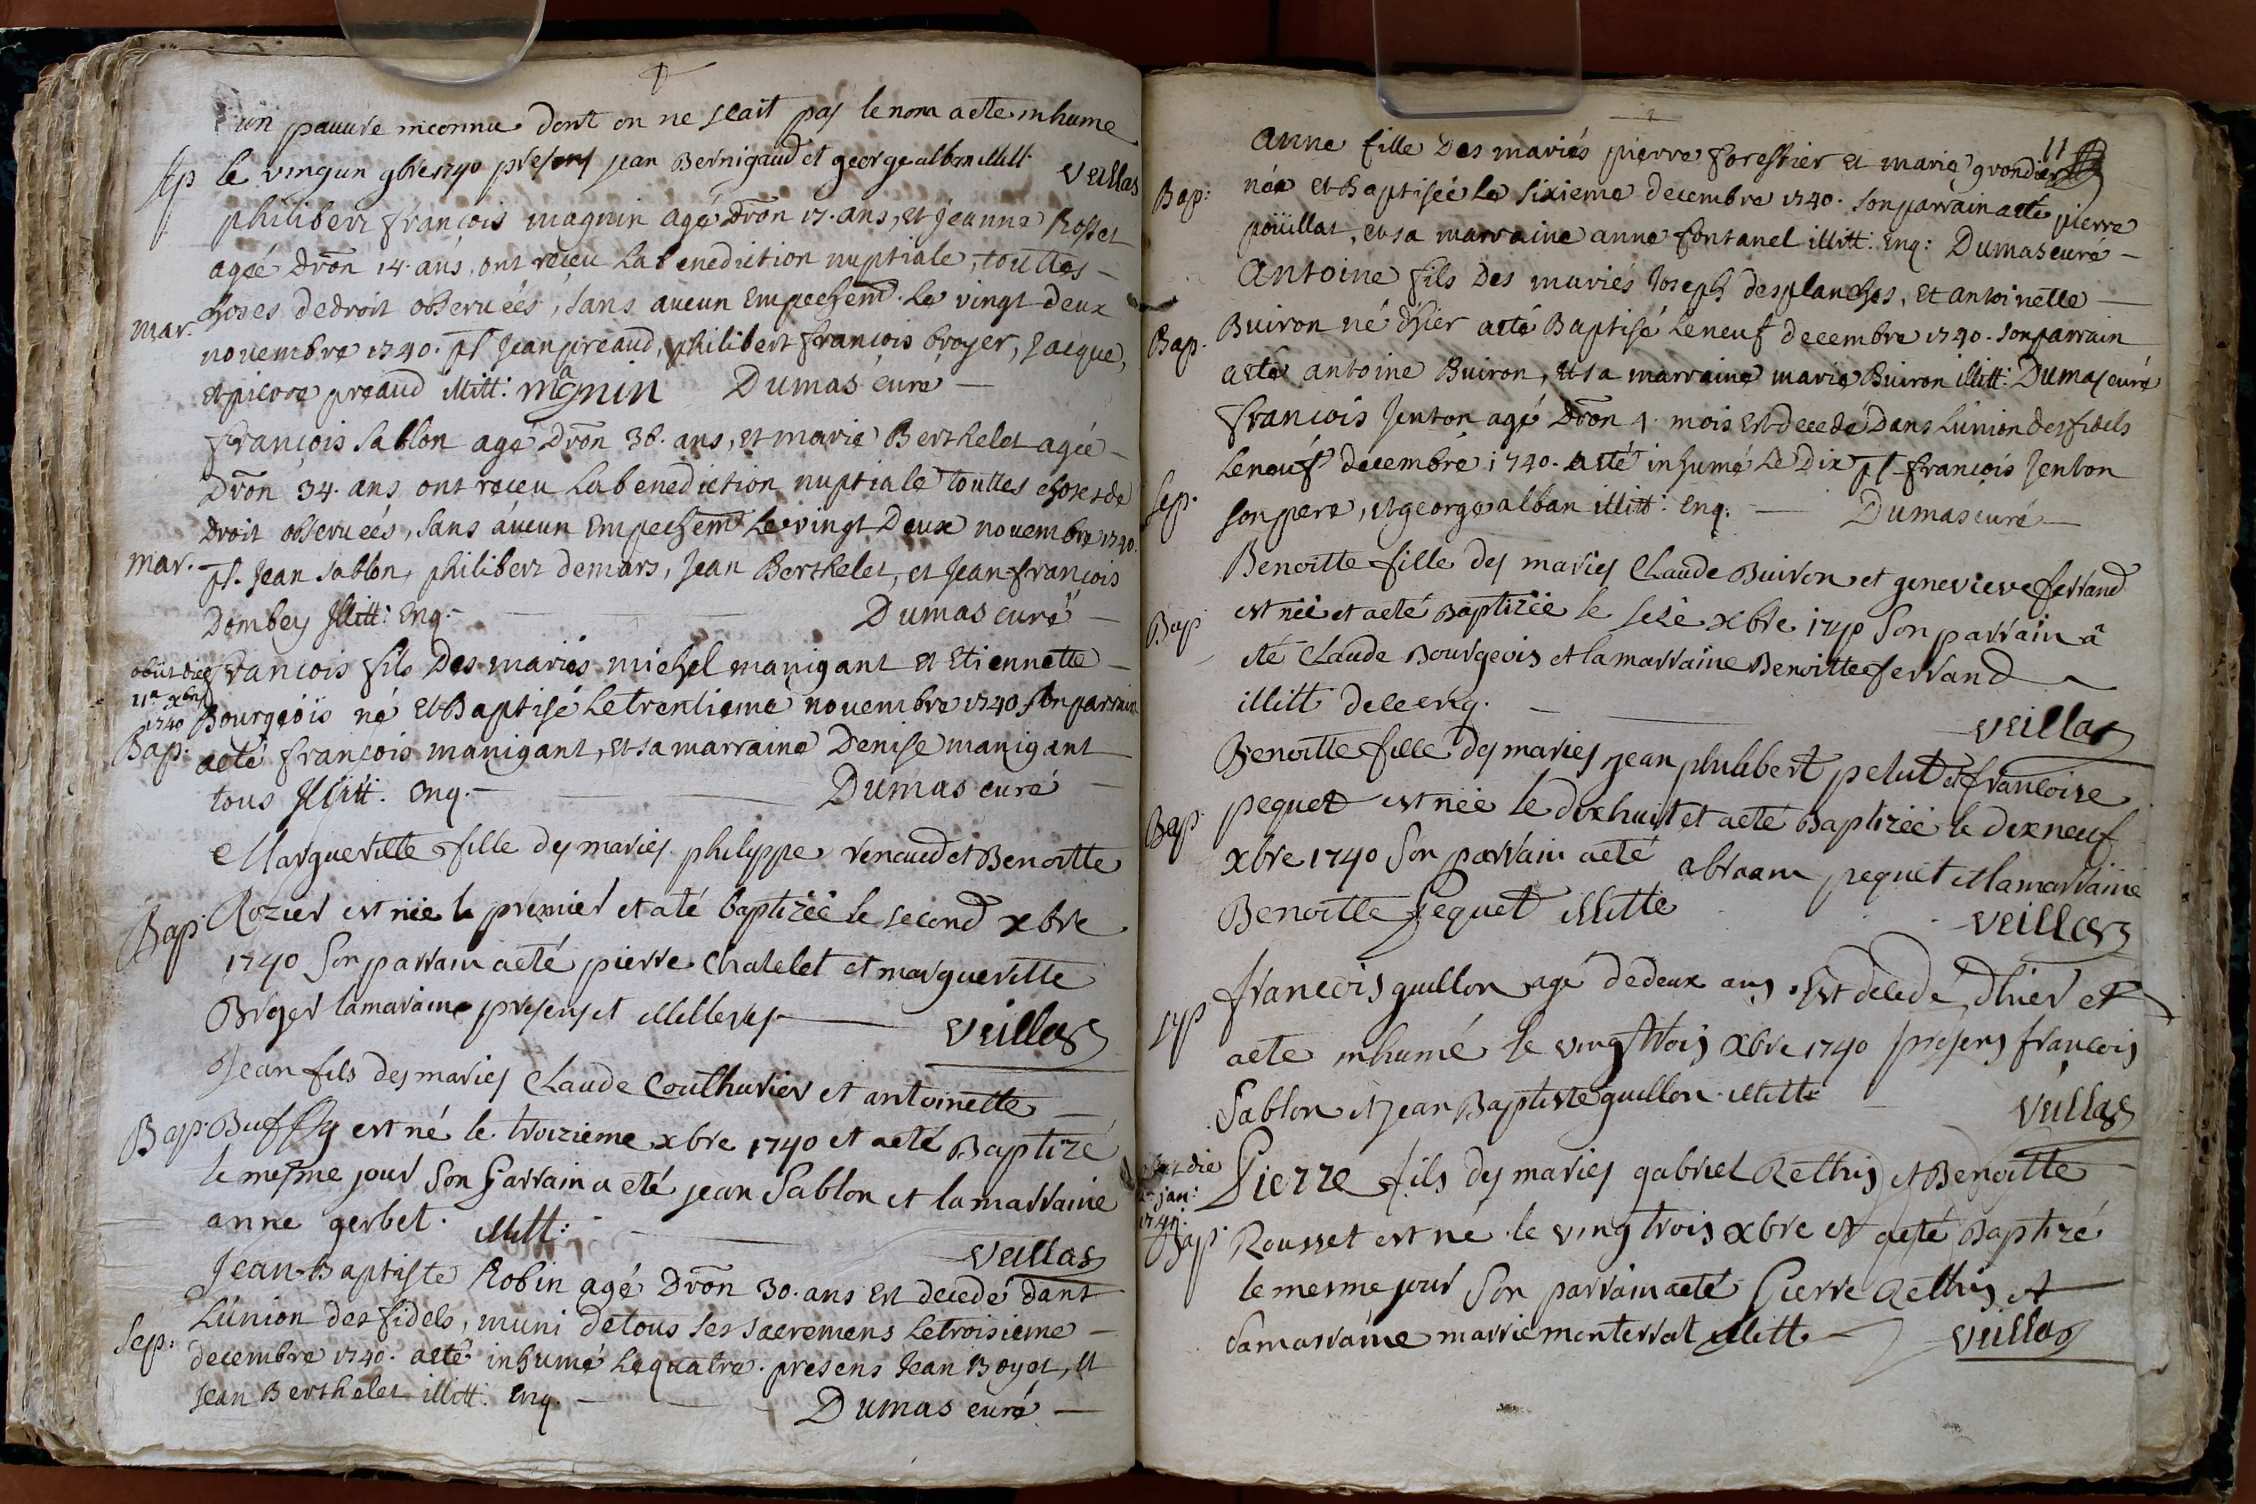 un pauure inconnu dont on ne scait pas le nom a ete inhumé
Sep le vingun 9bre 1740 presens jean Bernigaud et george alban illitt. Veillas
philibert françois magnin agé dron 17. ans, et Jeanne Rosset
agéé dron 14. ans, ont receu La benediction nuptiale, touttes
choses de droit obseruéés, sans aucun Empechemt. Le vingt deux
mar. nouembre 1740. pst Jean preaud, philibert françois broyer, Jacque,
et pierre preaud illitt: magnin Dumas curé
françois Sablon agé dron 38. ans, et marie Berthelet agéé
dron 34. ans ont receu La benediction nuptiale touttes choses de
droit obseruéés, sans aucun Empechemt Le vingt Deux nouembre 1740.
mar. pst. Jean Sablon, philibert demars, Jean Berthelet, et Jean françois
Dombey Illitt: Enq. Dumas curé
obiit die françois fils Des mariés michel manigant Et Etiennette
11a xbris
1740 Bourgeois né Et Baptisé Le trentieme nouembre 1740 son parrain
Bap: a eté françois manigant, et sa marraine Denise manigant
tous Illitt. Enq. Dumas curé
Margueritte fille des mariés philippe renaud et Benoitte
Bap. Rozier est née le premier et a té baptizéé le second xbre
1740 Son parrain a eté pierre Chatelet et margueritte
Broyer la maraine presens et illitteres Veillas
Jean fils des mariés Claude Couthurier et antoinette
Bap. Buffy est né le troizieme xbre 1740 et a eté Baptizé
le mesme jour Son Parrain a eté jean Sablon et la marraine
anne gerbet. illitt: Veillas
Jean-Baptiste Robin agé Dron 30. ans Est decedé dans
L'union des fidels, muni de tous ses sacremens Le troisieme
Sep. decembre 1740. a eté inhumé Le quatre. presens Jean Boyer, et
Jean Berthelet illitt. Enq. Dumas curé
11
anne fille Des mariés pierre forestier et marie grondier
Bap: néé et Baptiséé Le Sixieme decembre 1740. Son parrain a eté pierre
poüillat, et sa marraine anne fontanel illitt: Enq: Dumas curé
Antoine fils Des mariés Joseph desplanches, Et antoinette
Bap. Buiron né d'hier a eté Baptisé Le neuf decembre 1740. Son parrain
a eté antoine Buiron, et sa marraine marie Buiron illitt: Dumas curé
françois Jenton agé Dron 4. mois Est decedé Dans L'union des fidels
Le neuf decembre 1740. a eté inhumé Le Dix pst françois Jenton
Sep. son pere, et george alban illitt: Enq. Dumas curé
Benoitte fille des mariés Claude Buiron et genevieve ferrand
Bap est néé et a eté Baptizéé le sesé xbre 1740 Son parrain a
eté Claude Bourgeois et la marraine Benoitte ferrand
illitt de ce enq. Veillas
Benoitte fille des mariés jean philibert pelut et francoise
Bap. pequet est néé le dixhuit et a eté Baptizéé le dixneuf
xbre 1740 Son parrain a eté abraam pequet et la marraine
Benoitte Pequet illitte Veillas
francois guillon agé de deux ans. Est decedé d'hier et
Sep a ete inhumé le vingt trois xbre 1740 presens francois
Sablon et jean Baptiste guillon illitte Veillas
obiit die Pierre fils des mariés gabriel Rethis et Benoitte
jan:
1741.
Bap. Rousset est né le vingtrois xbre et a eté Baptizé
le mesme jour Son parrain a eté Pierre Rethis et
Sa marraine marrie monterrat illitt. Veillas